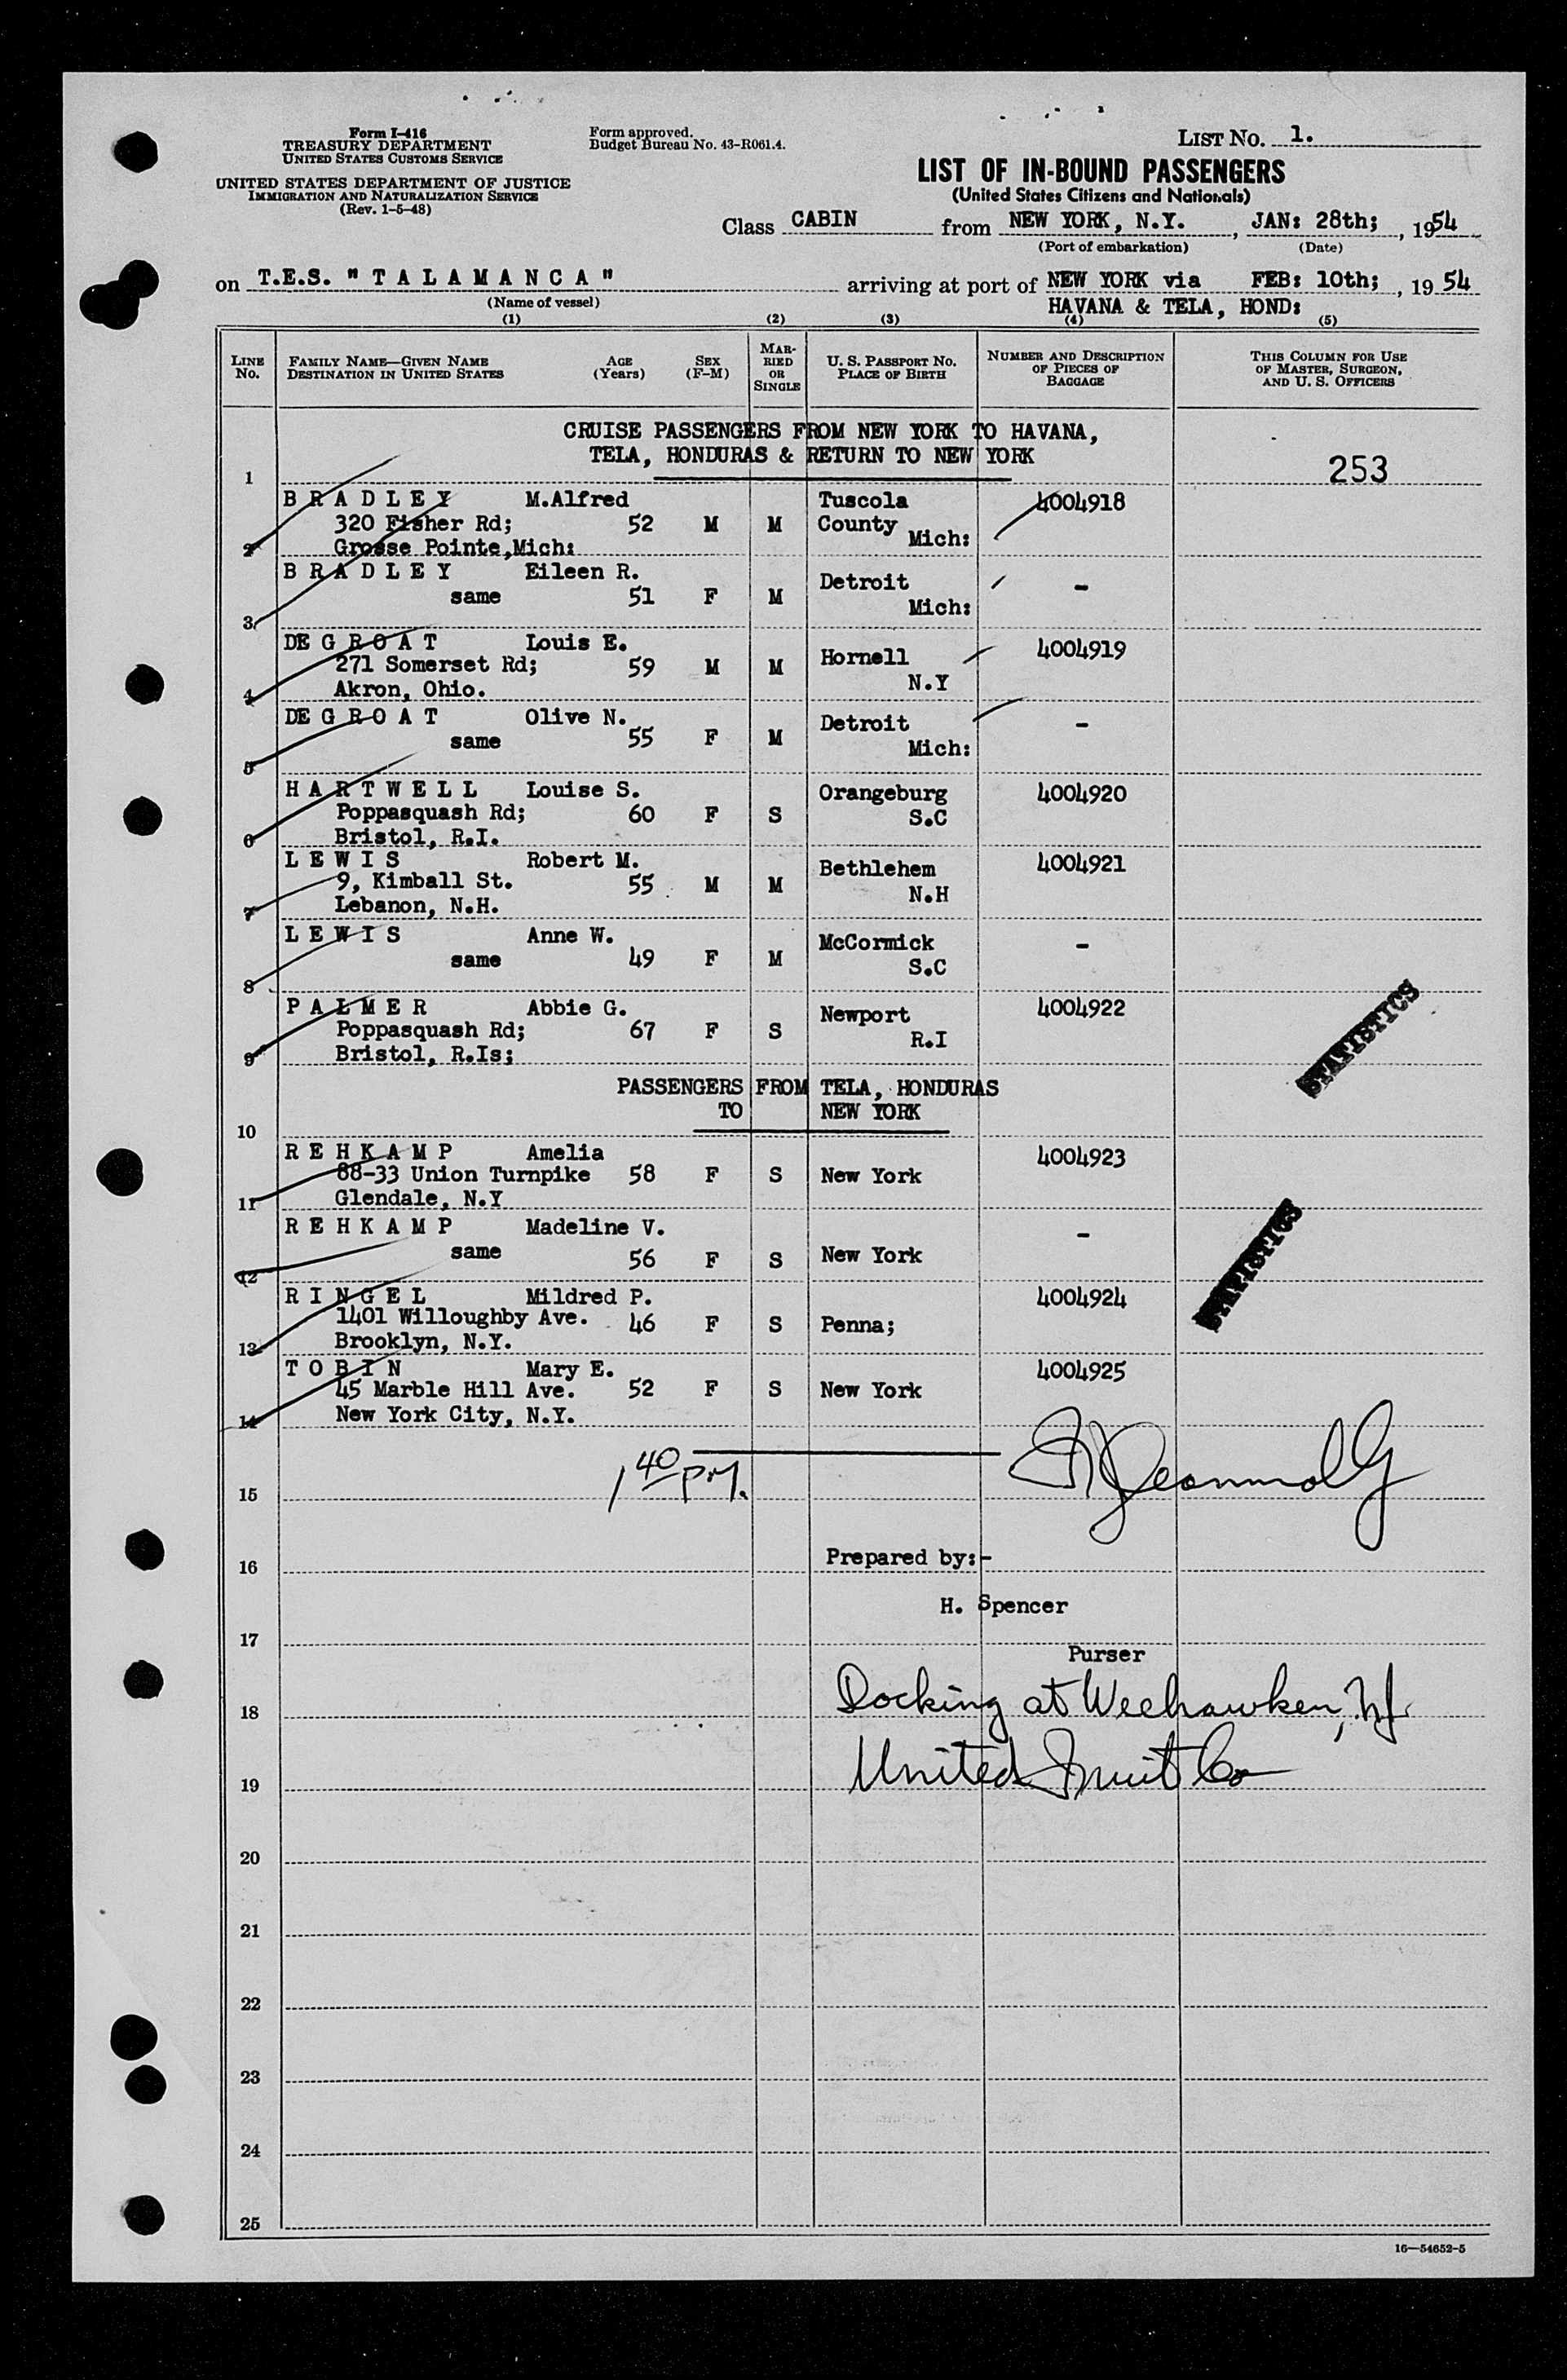 Form I-416
TREASURY DEPARTMENT
UNITED STATES CUSTOMS SERVICE
UNITED STATES DEPARTMENT OF JUSTICE
IMMIGRATION AND NATURALIZATION SERVICE
(Rev. 1-5-48)
Form approved.
Budget Bureau No. 43-R061.4.
LIST NO. 1.
LIST OF IN-BOUND PASSENGERS
(United States Citizens and Nationals)
Class CABIN from NEW YORK, N.Y. , JAN: 28th; , 1954
(Port of embarkation) (Date)
on T.E.S. "T A L A M A N C A" arriving at port of NEW YORK via FEB: 10th; , 1954
(Name of vessel) HAVANA & TELA, HOND:
(1) (2) (3) (4) (5)
LINE No. FAMILY NAME—GIVEN NAME DESTINATION IN UNITED STATES AGE (Years) SEX (F-M) MARRIED OR SINGLE U. S. PASSPORT NO. PLACE OF BIRTH NUMBER AND DESCRIPTION OF PIECES OF BAGGAGE THIS COLUMN FOR USE OF MASTER, SURGEON, AND U. S. OFFICERS
CRUISE PASSENGERS FROM NEW YORK TO HAVANA,
TELA, HONDURAS & RETURN TO NEW YORK
1 253
B R A D L E Y M.Alfred Tuscola 4004918
320 Fisher Rd; 52 M M County
2 Grosse Pointe,Mich: Mich:
B R A D L E Y Eileen R. Detroit -
same 51 F M Mich:
3
DE G R O A T Louis E. Hornell 4004919
271 Somerset Rd; 59 M M
4 Akron, Ohio. N.Y
DE G R O A T Olive N. Detroit -
same 55 F M Mich:
5
H A R T W E L L Louise S. Orangeburg 4004920
Poppasquash Rd; 60 F S S.C
6 Bristol, R.I.
L E W I S Robert M. Bethlehem 4004921
9, Kimball St. 55 M M N.H
7 Lebanon, N.H.
L E W I S Anne W. McCormick -
same 49 F M S.C
8
P A L M E R Abbie G. Newport 4004922
Poppasquash Rd; 67 F S R.I
9 Bristol, R.Is;
STATISTICS
PASSENGERS FROM TELA, HONDURAS
TO NEW YORK
10
R E H K A M P Amelia 4004923
88-33 Union Turnpike 58 F S New York
11 Glendale, N.Y
R E H K A M P Madeline V. -
same 56 F S New York
12
STATISTICS
R I N G E L Mildred P. 4004924
1401 Willoughby Ave. 46 F S Penna;
13 Brooklyn, N.Y.
T O B I N Mary E. 4004925
45 Marble Hill Ave. 52 F S New York
14 New York City, N.Y.
1 40 P.M.
15
Prepared by:-
16
H. Spencer
17
Purser
18 Docking at Weehawken, NJ
19 United Fruit Co
20
21
22
23
24
25
16—54652-5